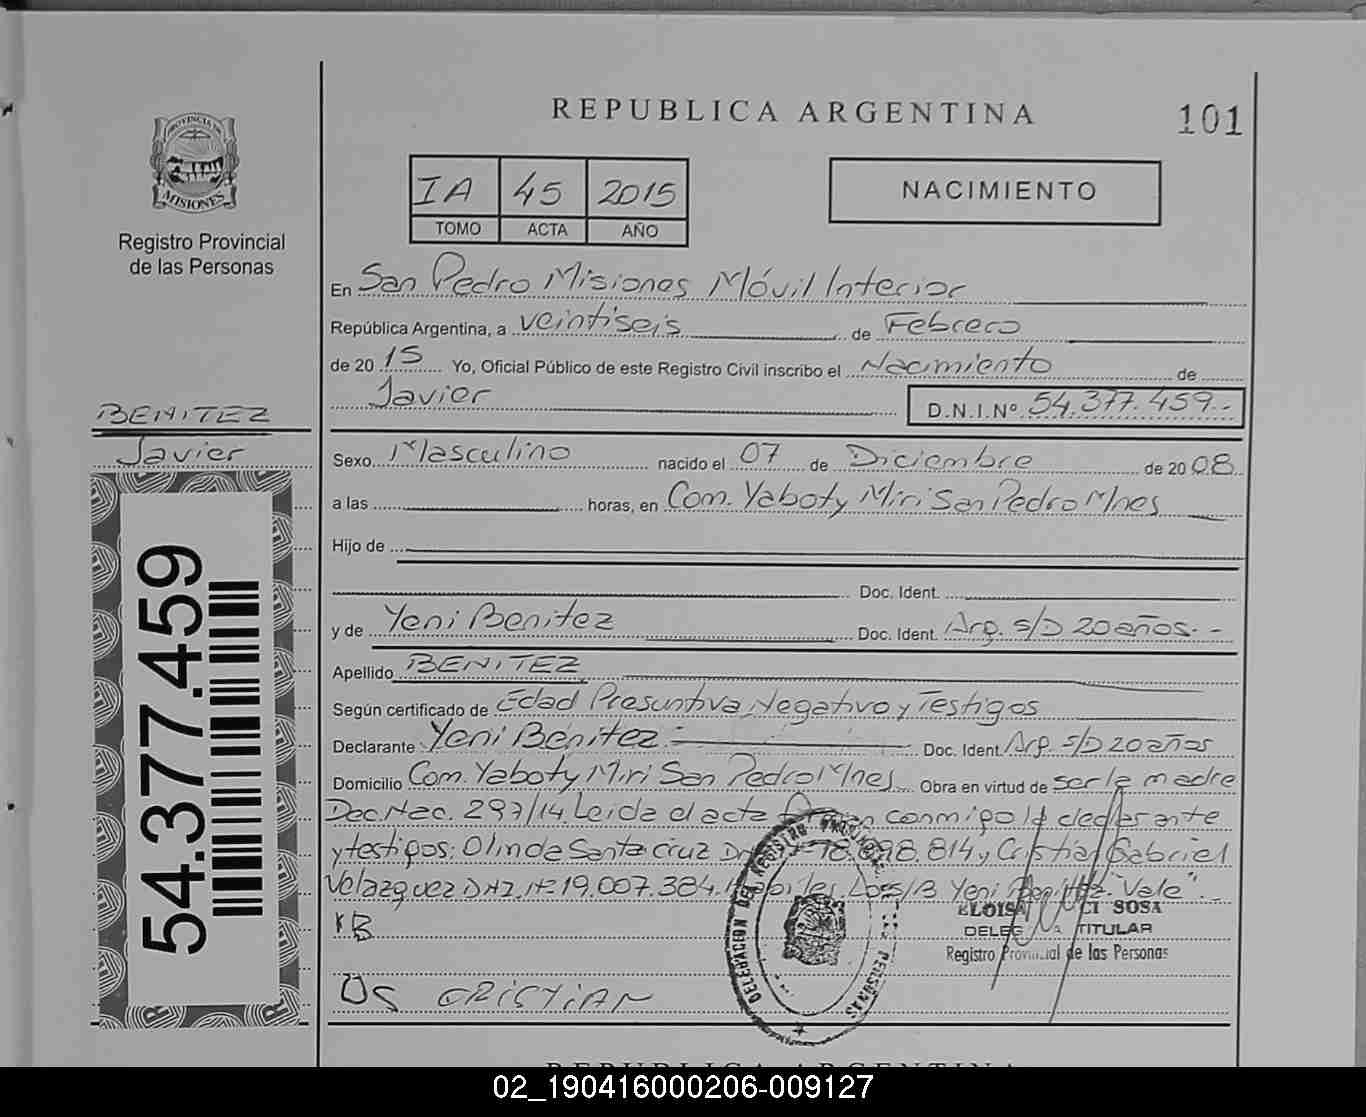 REPUBLICA ARGENTINA
101
PROVINCIA DE
MISIONES
Registro Provincial
de las Personas
IA 45 2015
TOMO ACTA AÑO
NACIMIENTO
En San Pedro Misiones Móvil Interior
República Argentina, a veintiseis de Febrero
de 2015 Yo, Oficial Público de este Registro Civil inscribo el Nacimiento de
Javier D.N.I.Nº 54.377.459.-
BENITEZ
Javier
54.377.459
Sexo Masculino nacido el 07 de Diciembre de 2008
a las horas, en Com. Yaboty Miri San Pedro Mnes
Hijo de
Doc. Ident.
y de Yeni Benitez Doc. Ident. Arg. s/D 20 años.-
Apellido BENITEZ
Según certificado de Edad Presuntiva, Negativo y Testigos
Declarante Yeni Benitez Doc. Ident. Arg. s/D 20 años
Domicilio Com. Yaboty Miri San Pedro Mnes Obra en virtud de ser la madre
Dec. Nac. 297/14 Leida el acta conmigo la declarante
y testigos: Olinda Santa cruz 18.898.814 y Cristian Gabriel
Velazquez DNI Nº 19.007.384. Habiles. Yeni Benitez. "Vale".-
YB
ELOISA SOSA
DELEGADA TITULAR
Registro Provincial de las Personas
DELEGACION DEL REGISTRO PROVINCIAL DE LAS PERSONAS
OS CRISTIAN
REPUBLICA ARGENTINA
02_190416000206-009127